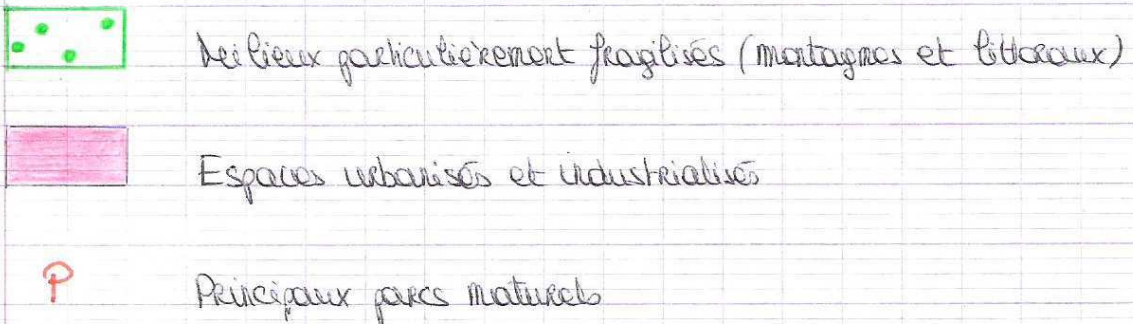 Milieux particulièrement fragilisés (montagnes et littoraux)
Espaces urbanisés et industrialisés
P Principaux parcs naturels